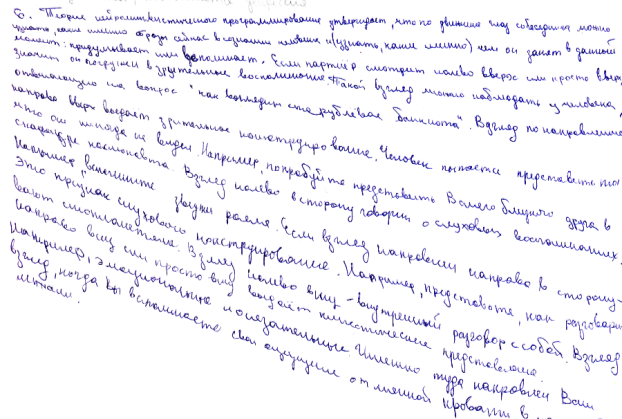 6. Теория нейролингвистического программирования утверждает, что по движению глаз собеседника можно
узнать, какие именно образы сейчас в сознании человека и (узнать, какие именно) чем он занят в данный
момент: придумывает или вспоминает. Если партнёр смотрит налево вверх или просто вверх,
значит он погружён в зрительное воспоминание. Такой взгляд можно наблюдать у человека,
отвечающего на вопрос "как выглядит сторублевая банкнота". Взгляд по направлению
направо вверх выдаёт зрительное конструирование. Человек пытается представить то,
что он никогда не видел. Например, попробуйте представить Вашего близкого друга в
скафандре космонавта. Взгляд налево в сторону говорит о слуховых воспоминаниях.
Например, вспомните звуки рояля. Если взгляд направлен направо в сторону -
это признак слухового конструирования. Например, представьте, как разговари-
вают инопланетяне. Взгляд налево вниз - внутренний разговор с собой. Взгляд
направо вниз или просто вниз выдаёт кинестетические представления.
Например, эмоциональные и осязательные. Именно туда направлен Ваш
взгляд, когда вы вспоминаете свои ощущения от мягкой кровати в